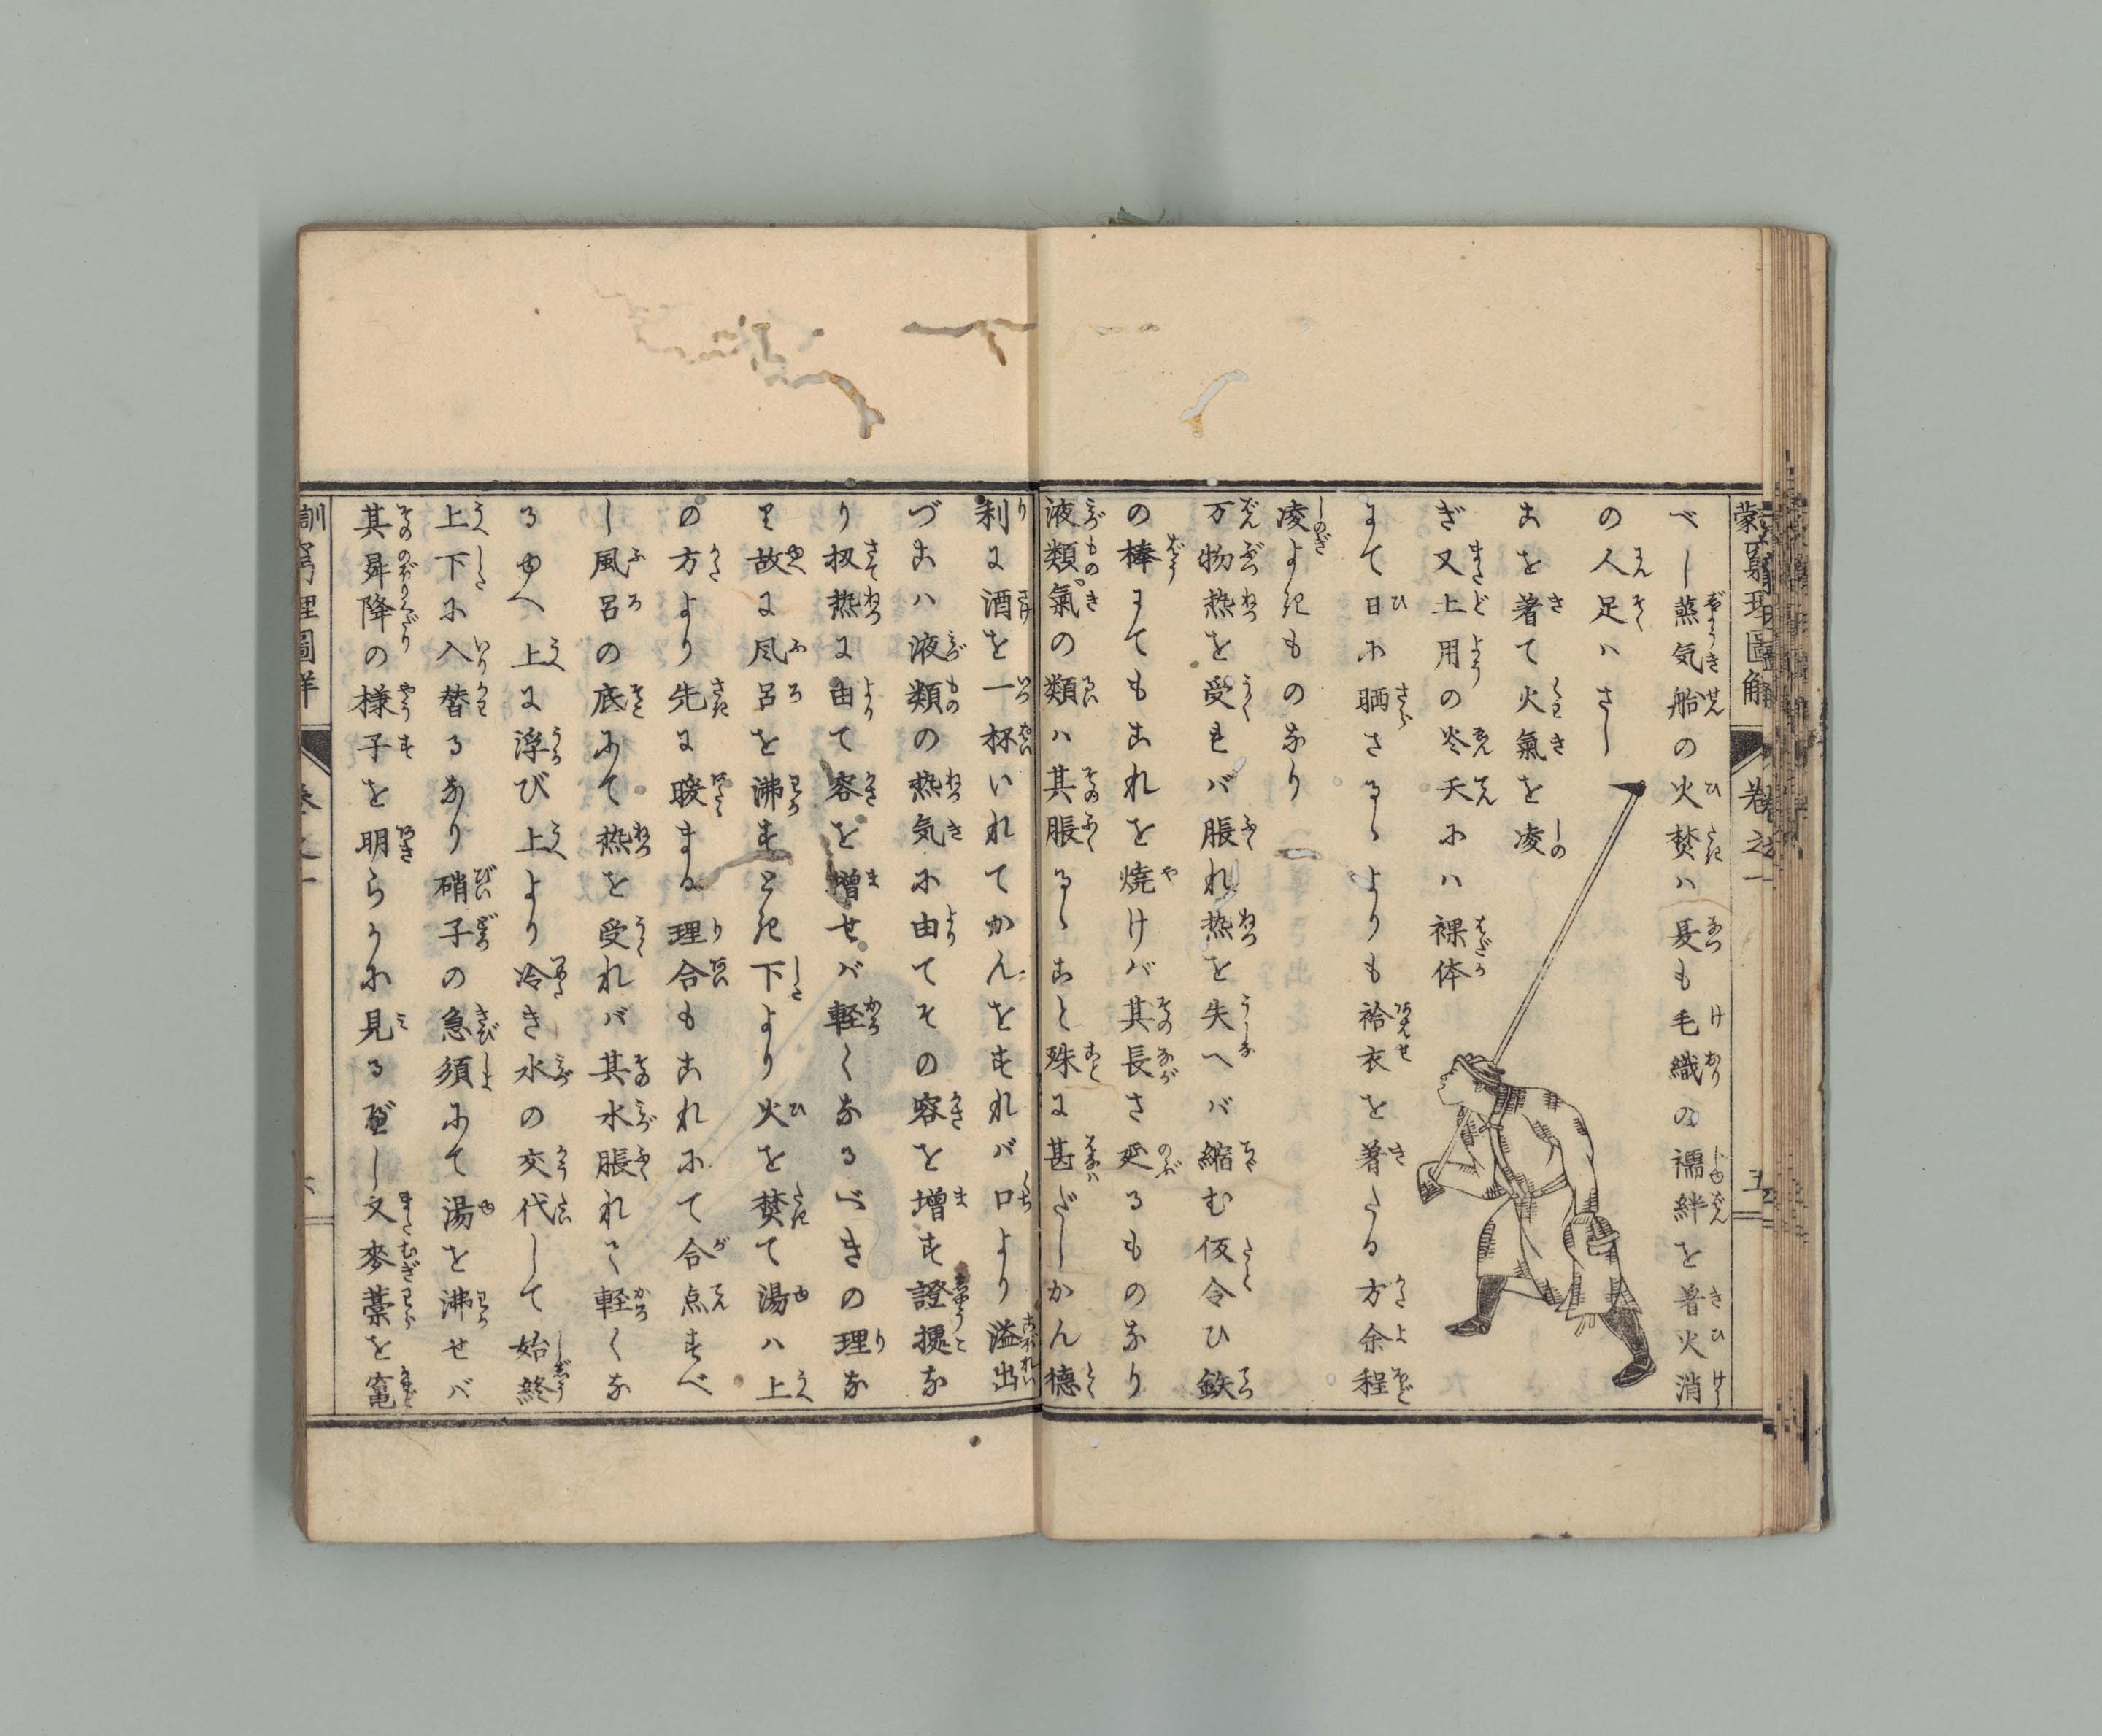 蒙窮理圖解 卷之一
べし蒸気船の火焚ハ夏も毛織の襦絆を着火消
の人足ハさし
こを着て火氣を凌
ぎ又土用の炎天にハ裸体
にて日に晒さるゝよりも袷衣を着たる方余程
凌よきものなり
万物熱を受れバ脹れ熱を失へバ縮む仮令ひ鉄
の棒にてもこれを焼けバ其長さ延るものなり
液類氣の類ハ其脹るゝこと殊に甚だしかん徳
利に酒を一杯いれてかんをすれバ口より溢出
づこハ液類の熱気に由てその容を増す證拠な
り扨熱に由て容を増せバ軽くなるべきの理な
り故に風呂を沸すとき下より火を焚て湯ハ上
の方より先に暖まる理合もこれにて合点すべ
し風呂の底にて熱を受れバ其水脹れて軽くな
るゆへ上に浮び上より冷き水の交代して始終
上下に入替るなり硝子の急須にて湯を沸せバ
其昇降の様子を明らかに見るべし又麥藁を竃
訓